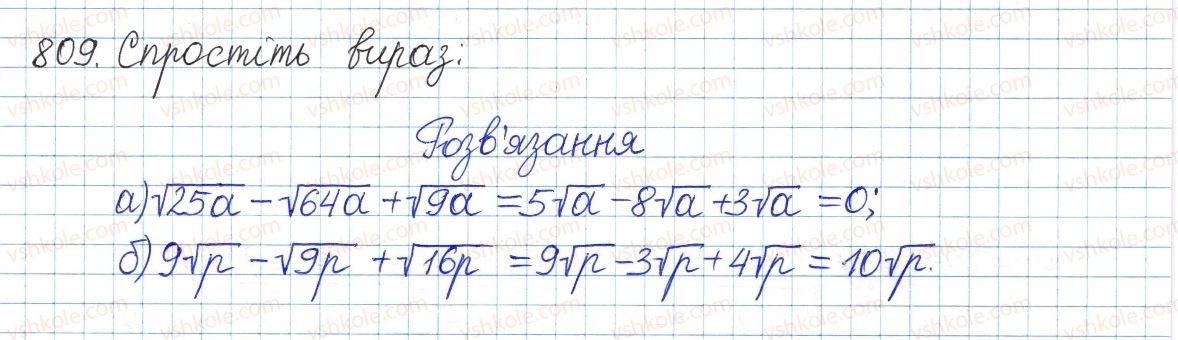 809. Спростіть вираз:
Розв'язання
а) √25a - √64a + √9a = 5√a - 8√a + 3√a = 0;
б) 9√p - √9p + √16p = 9√p - 3√p + 4√p = 10√p.